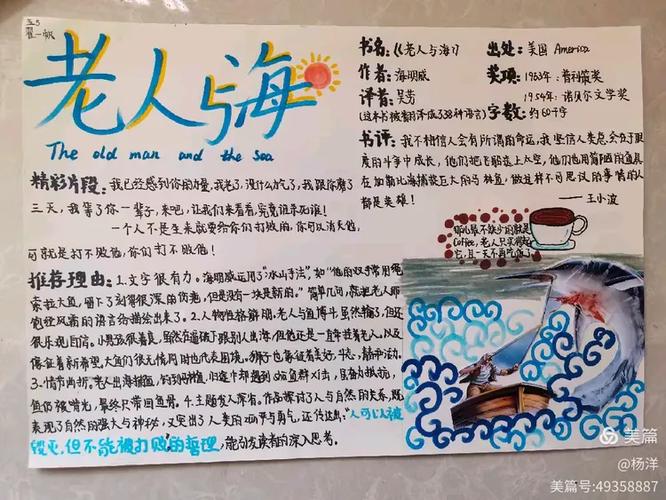 五5
翟一帆
老人与海
The old man and the sea
书名:《老人与海》
出处:美国 America
作者:海明威
奖项:1953年:普利策奖
译者:吴劳
1954年:诺贝尔文学奖
字数:约60千字
书评:我不相信人会有所谓的命运,我坚信人类总会在
的斗争中成长,他们把飞船送上太空,他们也用简陋的渔具
在加勒比海捕获巨大的马林鱼,做这样不可思议的事情的人
都是英雄!
——王小波
精彩片段:我已经感到你的力量,我老了,没什么力气了,我跟你磨了
三天,我等了你一辈子,来吧,让我们来看看,究竟谁杀死谁!
一个人不是生来就要给你们打败的,你可以消灭他,
可就是打不败他,你们打不败他!
Coffee,老人只
推荐理由:1.文字很有力。海明威运用了“冰山手法”,如“他的双手常用绳
索拉大鱼,留下了刻得很深的伤疤,但是没有一块是新的。”简单几句,就把老人那
饱经风霜的语言给描绘出来了。2.人物性格鲜明,老人与鱼搏斗虽然输了,但还
很乐观自信。小男孩很善良,虽然在逼迫下跟别人出海,但他还是一直牵挂着老人,以及
象征着新希望。大鱼们很无情同时也代表困境。狮子也象征着美好,年轻,精神活力。
3.情节曲折。老人出海捕鱼,钓到马林鱼,归途中却遇到
鱼仍被啃光,最终只带回鱼骨。4.主题发人深省。作品探讨了人与自然的关系,既
表现了自然的强大与神秘,又突出了人类的
“人可以被
毁灭,但不能被打败的哲理,能引发读者的深入思考。
美篇
@杨洋
美篇号:49358887